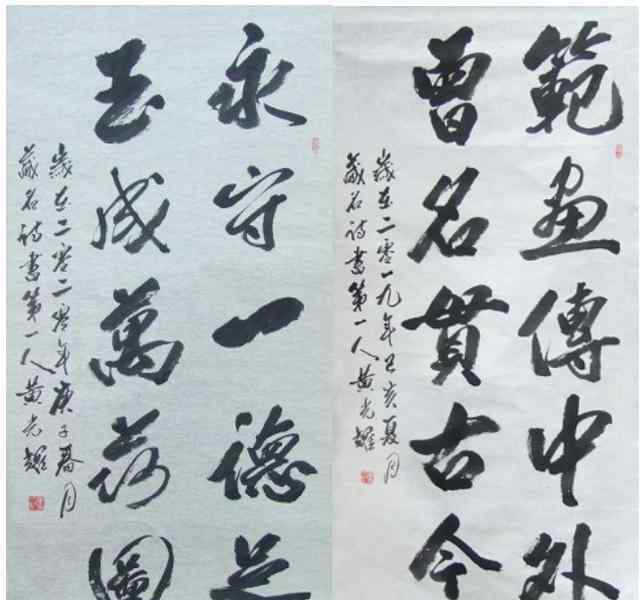 範畫傳中外
曾名貫古今
歲在二零一九年己亥夏月
藏名詩書第一人黃光耀
永守一德足
玉成萬圖
歲在二零二零年庚子春月
藏名詩書第一人黃光耀